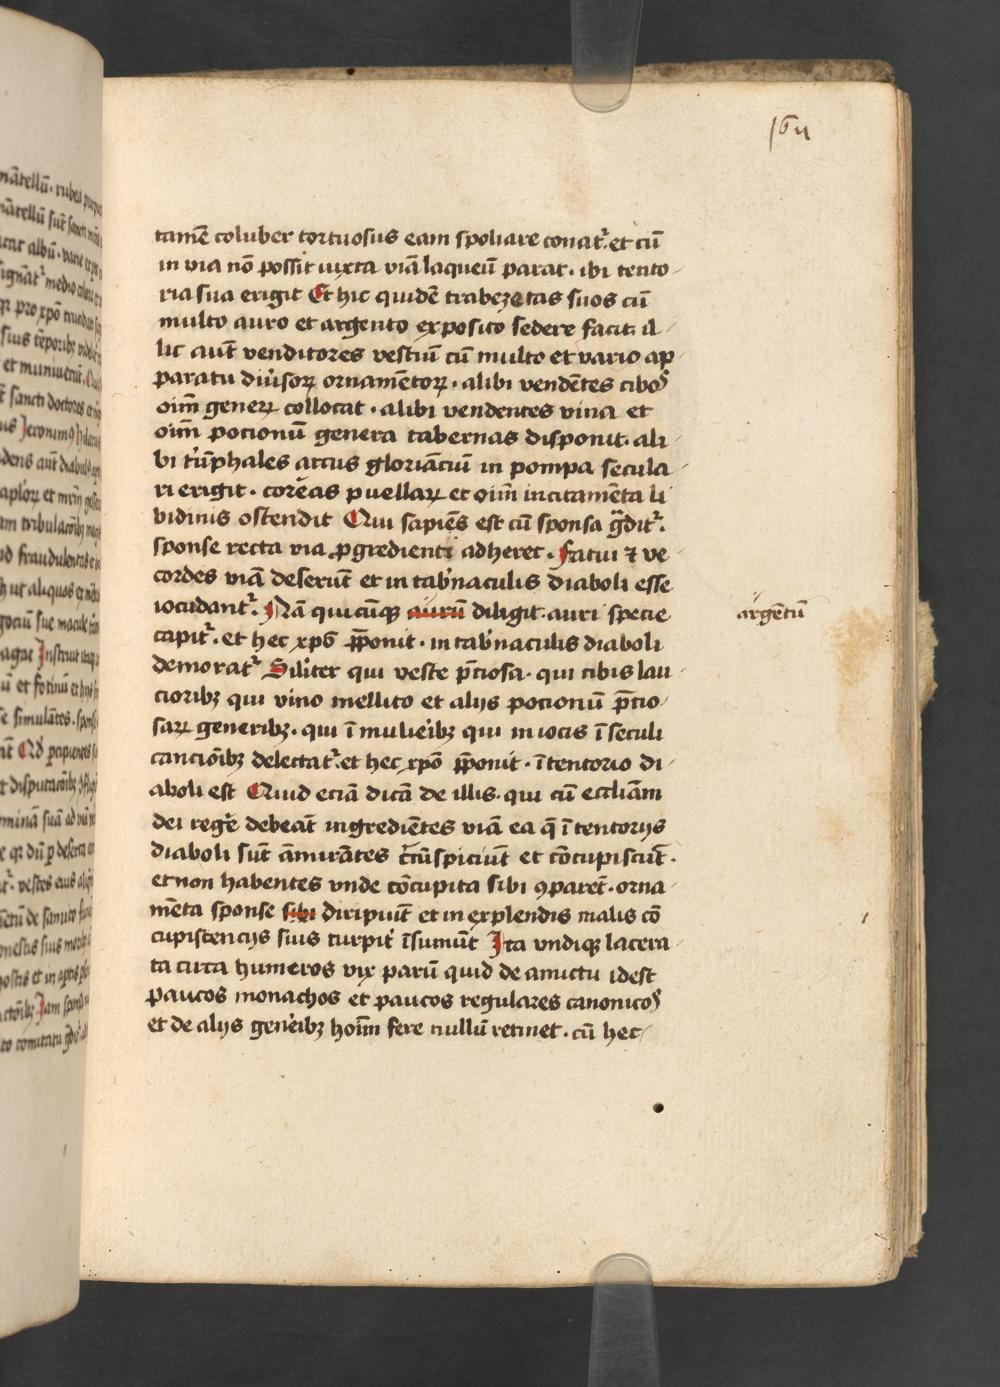 164
tamē coluber tortuosus eam spoliare conat᷑. et cū
in via nō possit iuxta viā laqueū parat · ibi tento
ria sua erigit Et hic quidē trabezetas suos cū
multo auro et argento exposito sedere facit. il
lic aūt venditores vestiū cū multo et vario ap
paratu diu̓soꝝ ornamētoꝝ · alibi vendētes cibos
oīm geneꝝ collocat · alibi vendentes vina et
oīm pocionū genera tabernas disponit. ali
bi tⁱūphales arcus gloriāciū in pompa secula
ri erigit · coreas puellaꝝ et oīm incitamēta li
bidinis ostendit Qui sapiēs est cū sponsa gᷓdit᷑.
sponse recta via ꝓgredienti adheret · Fatui ⁊ ve
cordes viā deserūt et in tab̓naculis diaboli esse
iocūdant᷑. Nā quicūqꝫ aurū diligit. auri specie
argētū
capit᷑. et hec xp̄o p̄ponit · in tab̓naculis diaboli
demorat᷑ Sil̓iter qui veste p̄ciosa · qui cibis lau
cioribꝫ qui vino mellito et alijs pocionū p̄cio
saꝝ generibꝫ. qui ī mulieribꝫ qui in iocis ī seculi
cancionībꝫ delectat᷑. et hec xp̄o p̄ponit · ī tentorio di
aboli est Quid eciā dicā de illis · qui cū eccl̓iam
dei reg̓e debeāt ingredientes viā ea q̄ ī tentorijs
diaboli sūt āmirātes cⁱcūspiciūt et cōcupiscūt ·
et non habentes vnde cōcupita sibi ꝯparēt · orna
mēta sponse sibi diripiūt et in explendis malis cō
cupiscencijs suis turpit̓ īsumūt Ita vndiqꝫ lacera
ta circa humeros vix parū quid de amictu idest
paucos monachos et paucos regulares canonicos
et de alijs gen̓eibꝫ hoīm fere nullū retinet · cū hec